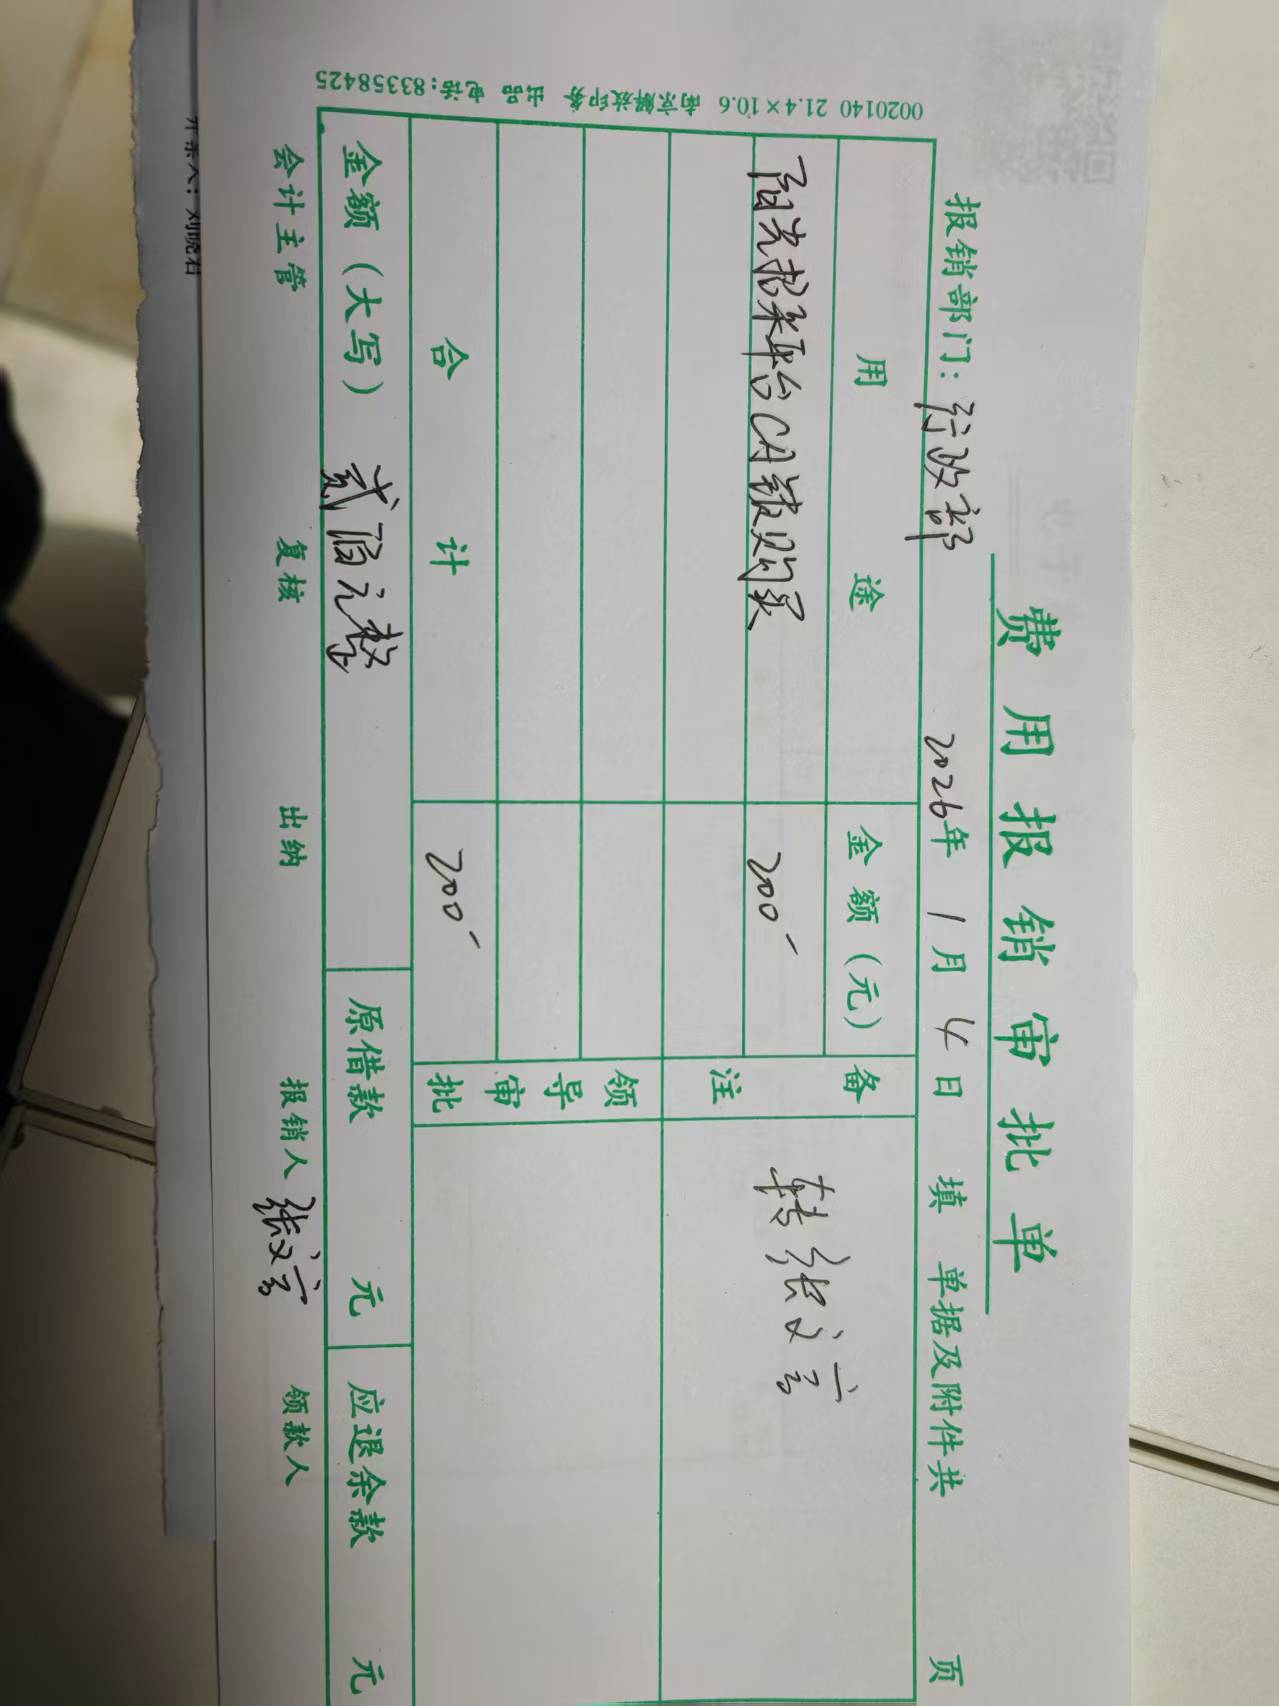 费用报销审批单
报销部门：行政部 2026年1月4日填 单据及附件共 页
用途 金额（元） 备注
阳光招采平台CA锁购买 200- 转张文言
领导审批
合计 200-
金额（大写） 贰佰元整 原借款 元 应退余款 元
会计主管 复核 出纳 报销人 张文言 领款人
0020140 21.4×10.6 南京解放印务 出品 电话：83358425
开票人：刘晓君